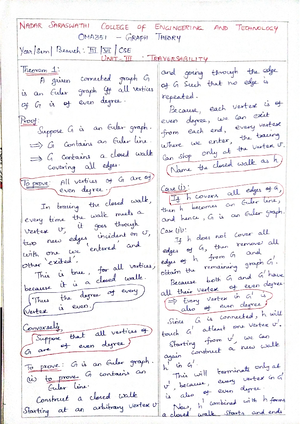 NADAR SARASWATHI COLLEGE OF ENGINEERING AND TECHNOLOGY
OMA351 - GRAPH THEORY
Year/Sem/Branch: III/VI/CSE
UNIT-III: TRAVERSABILITY
Theorem 1:
A given connected graph G
is an Euler graph iff all vertices
of G is of even degree.
Proof:
Suppose G is an Euler graph.
⟹ G contains an Euler line
⟹ G contains a closed walk
covering all edges.
To prove: All vertices of G are of
even degree.
In tracing the closed walk,
every time the walk meets a
vertex v, it goes through
two new edges incident on v,
with one 'entered' and
other 'exited'.
This is true, for all vertices,
because it is a closed walk.
Thus the degree of every
vertex is even.
Conversely,
Suppose that all vertices of
G are of even degree.
To prove: G is an Euler graph.
(ie) to prove: G contains an
Euler line.
Construct a closed walk
starting at an arbitrary vertex v
and going through the edge
of G such that no edge is
repeated.
Because, each vertex is of
even degree, we can exit
from each end, every vertex
where we enter, the tracing
can stop only at the vertex v.
Name the closed walk as h.
Case (i):
If h covers all edges of G,
then h becomes an Euler line,
and hence, G is an Euler graph.
Case (ii):
If h does not cover all
edges of G, then remove all
edges of h from G and
obtain the remaining graph G'.
Because both G and G' have
all their vertex of even degree
⟹ Every vertex in G' is
also of even degree.
Since G is connected, h will
touch G' atleast one vertex v'.
Starting from v', we can
again construct a new walk
h' in G'.
This will terminate only at
v', because, every vertex in G'
is also of even degree.
Now, h' combined with h forms
a closed walk starts and ends